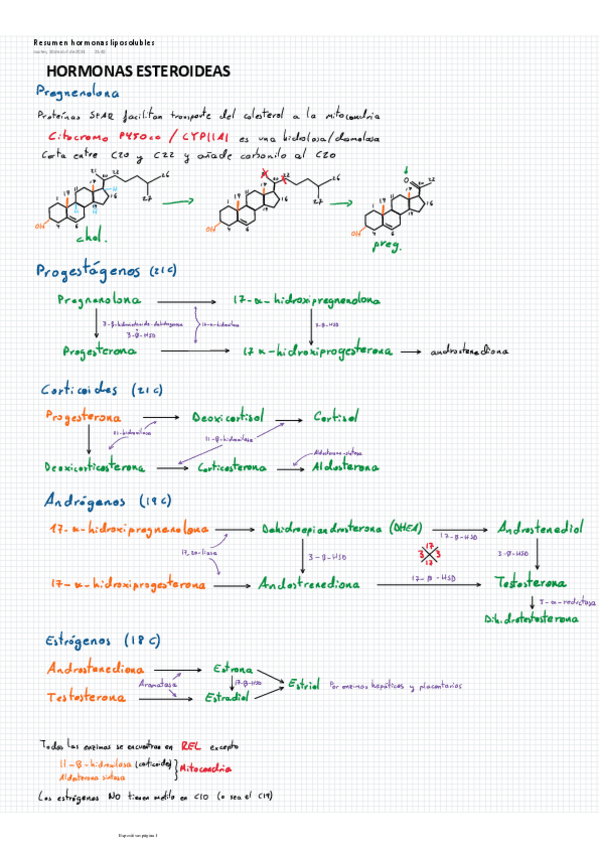 Resumen hormonas liposolubles
HORMONAS ESTEROIDEAS
Pregnenolona
Proteínas StAR facilitan transporte del colesterol a la mitocondria
Citocromo P450cc / CYP11A1 es una hidrolasa/desmolasa
Corta entre C20 y C22 y añade carbonilo al C20
chol.
preg.
Progestágenos (21C)
Pregnenolona → 17-α-hidroxipregnenolona
3-β-HSD
17-α-hidroxilasa
3-β-HSD
Progesterona → 17α-hidroxiprogesterona → androstenediona
Corticoides (21C)
Progesterona → Deoxicortisol → Cortisol
21-hidroxilasa
11-β-hidroxilasa
Aldosterona-sintasa
Deoxicorticosterona → Corticosterona → Aldosterona
Andrógenos (19C)
17-α-hidroxipregnenolona → Dehidroepiandrosterona (DHEA) → Androstenediol
17-β-HSD
17,20-liasa
3-β-HSD
17
3 3
17
3-β-HSD
17-α-hidroxiprogesterona → Androstenediona → Testosterona
17-β-HSD
5-α-reductasa
Dihidrotestosterona
Estrógenos (18C)
Androstenediona → Estrona
Aromatasa
17-β-HSD
Estriol Por enzimas hepáticas y placentarias
Testosterona → Estradiol
Todas las enzimas se encuentran en REL excepto
11-β-hidroxilasa (corticoides)
Aldosterona sintasa
} Mitocondria
Los estrógenos NO tienen metilo en C10 (o sea el C19)